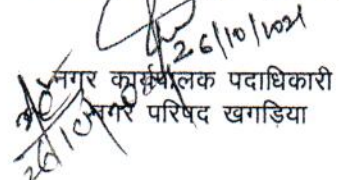 26/10/2021
नगर कार्यपालक पदाधिकारी
नगर परिषद खगड़िया